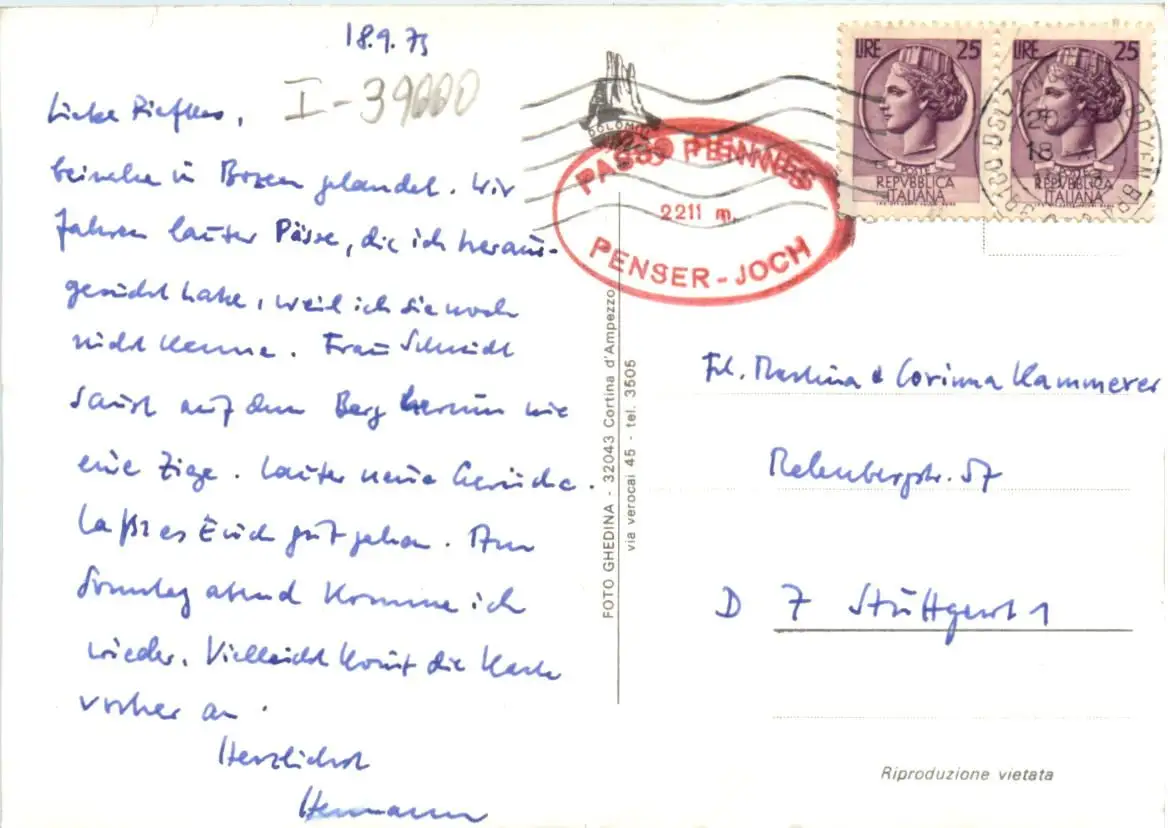 18.9.75
I-39000
Liebe
beinahe in Bozen gelandet. Wir
fahren lauter Pässe, die ich heraus-
gesucht habe, weil ich sie noch
nicht kenne. Frau Schmidt
saust auf dem Berg herum wie
eine Zige. Lauter neue Gerüche.
Laßt es Euch gut gehen. Am
Sonntag abend komme ich
wieder. Vielleicht komt die Karte
vorher an.
Herzlichst
Hermann
DOLOMITI
PASSO PENNES
2211 m.
PENSER-JOCH
LIRE 25
POSTE
REPVBBLICA
ITALIANA
LIRE 25
POSTE
REPVBBLICA
ITALIANA
FOTO GHEDINA - 32043 Cortina d'Ampezzo
via verocai 45 - tel. 3505
Frl. Martina & Corinna Kammerer
Relenbergstr. 57
D 7 Stuttgart 1
Riproduzione vietata